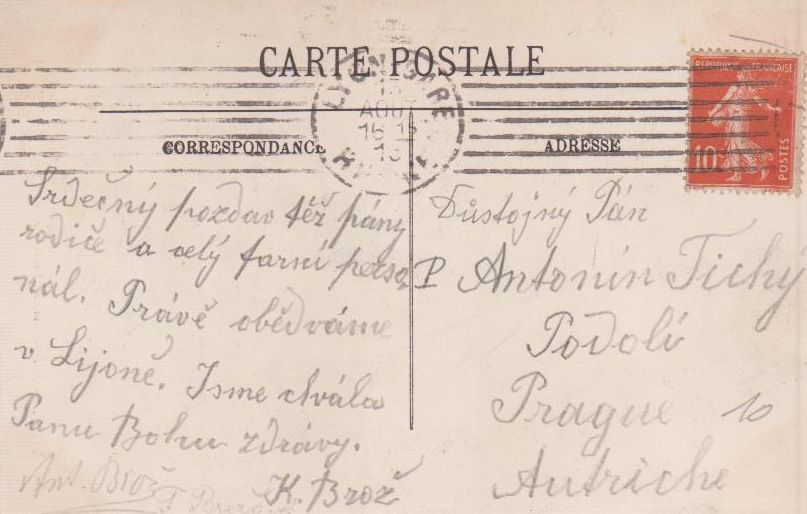 CARTE POSTALE
RÉPUBLIQUE FRANÇAISE
10
POSTES
LYON GARE
AOUT
16 15
CORRESPONDANCE
ADRESSE
Srdečný pozdav též pány
rodiče a celý farní perso
nál. Právě obědváme
v Lijoně. Jsme chvála
Panu Bohu zdrávy.
K. Brož
Ant. Brož
Důstojný Pán
P Antonín Tichý
Podolí
Prague 10
Autriche